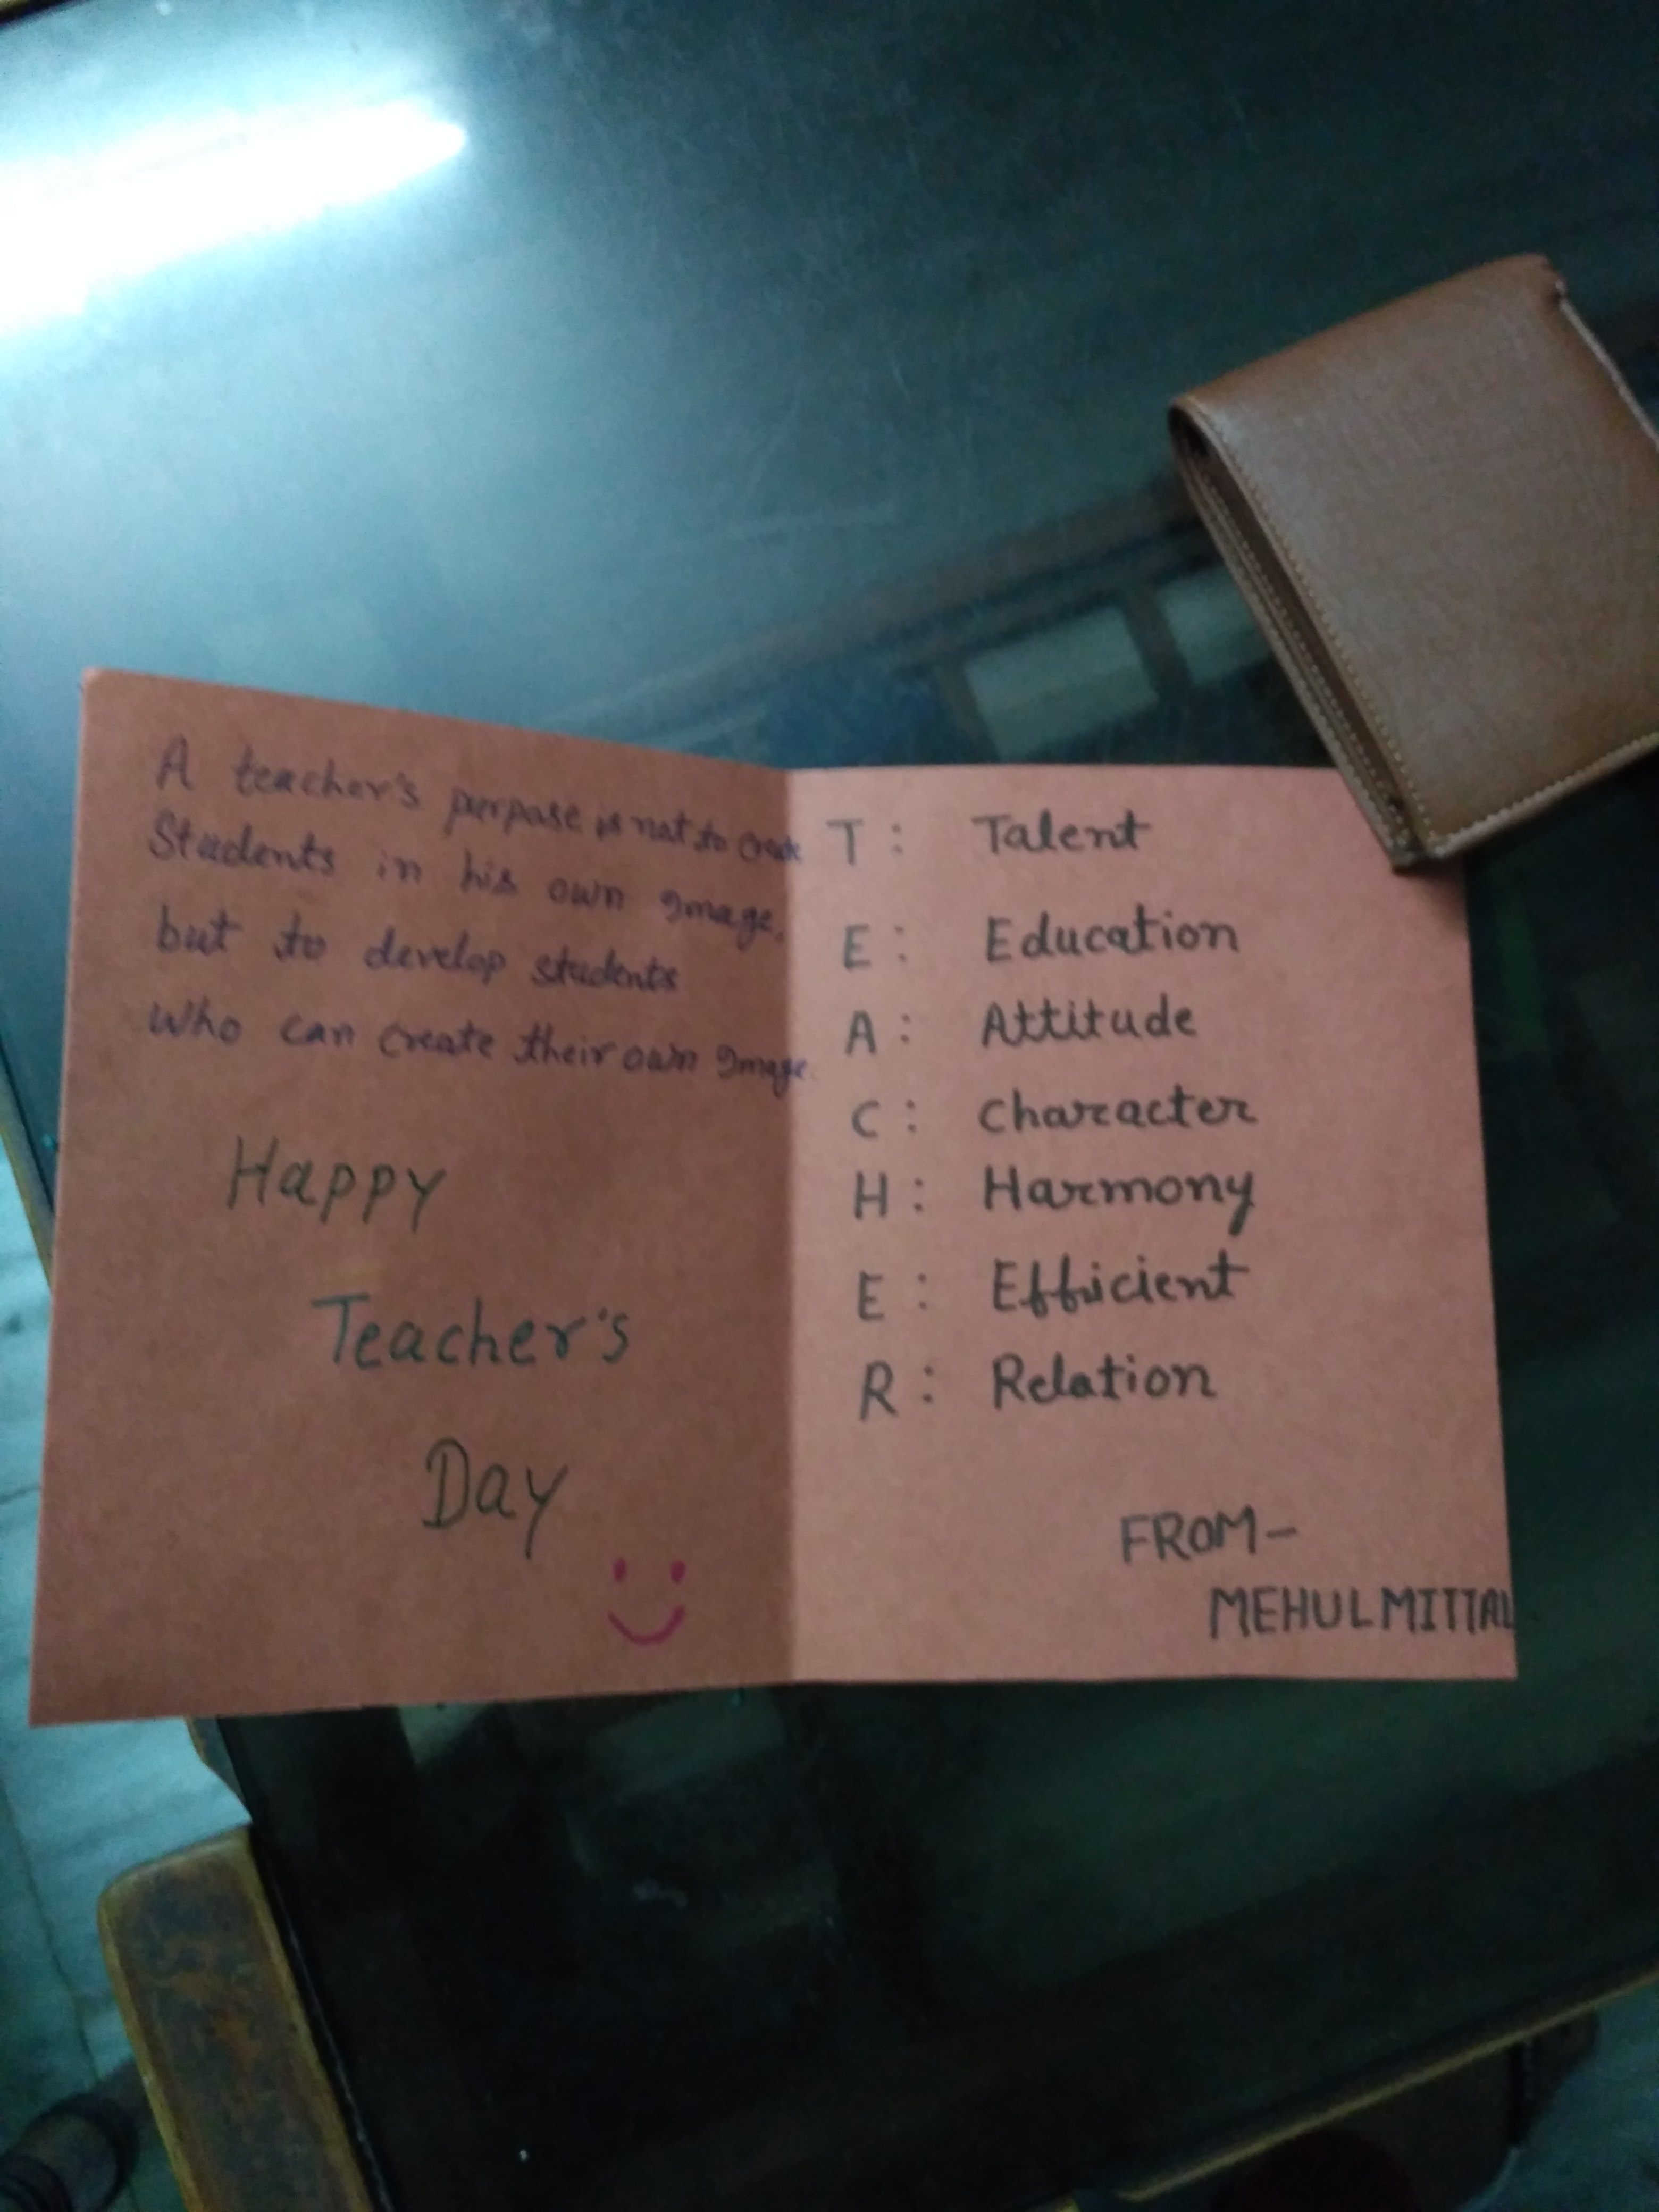 A teacher's purpose is not to create
Students in his own Image,
but to develop students
who can create their own Image.
Happy
Teacher's
Day
T : Talent
E : Education
A : Attitude
C : Character
H : Harmony
E : Efficient
R : Relation
FROM-
MEHUL MITTAL